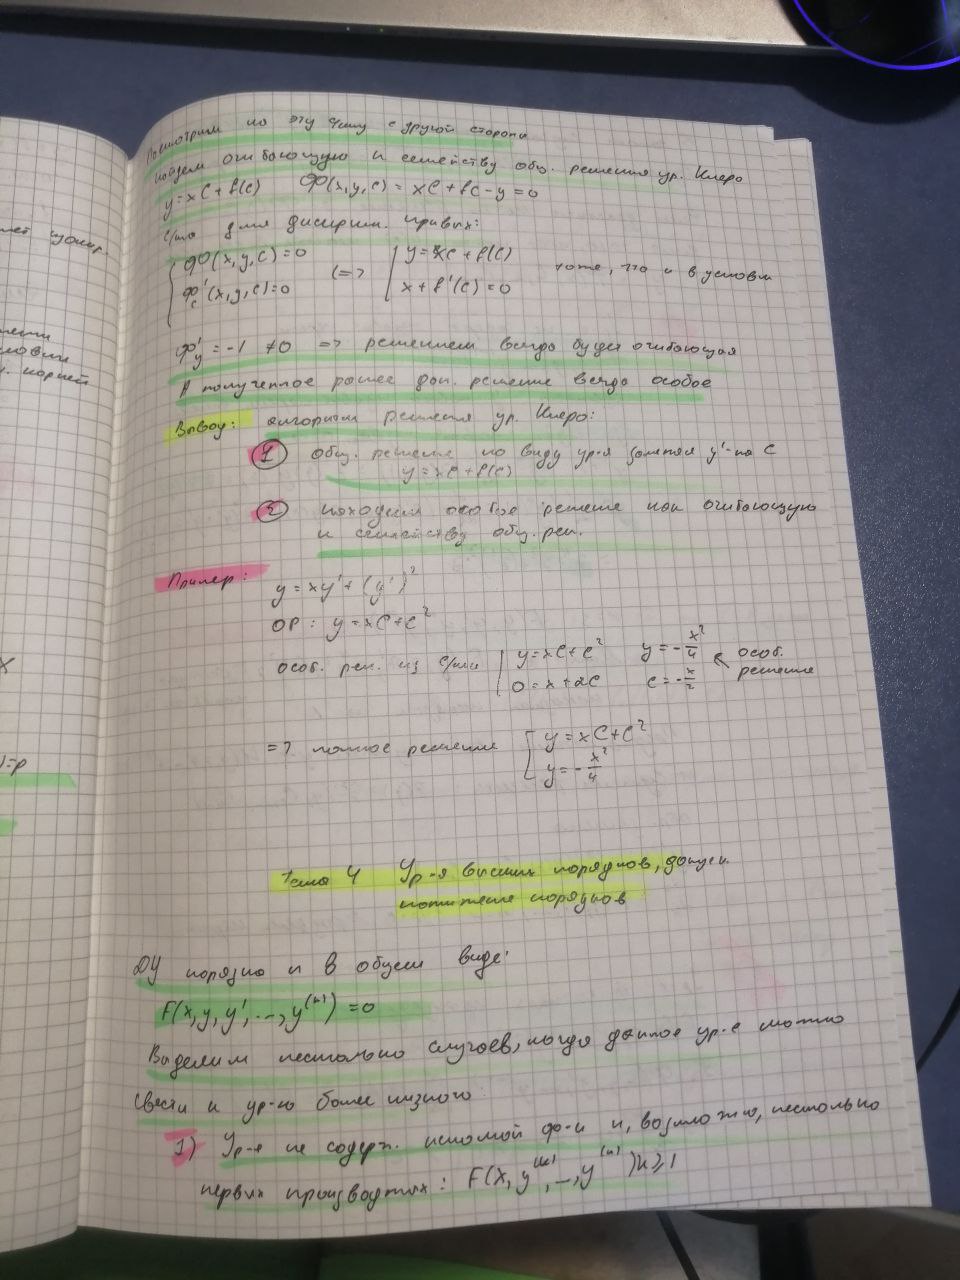 Посмотрим на эту тему с другой стороны
найдем огибающую к семейству общ. решения ур. Клеро
y=xC+f(C) Ф(x,y,c) = xC+fC-y=0
С/ма для дискрим. кривых:
{ Ф(x,y,c)=0 <=> { y=xC+f(C) тоже, что и в условии
Ф'c(x,y,c)=0 x+f'(C)=0
Ф'y=-1 ≠0 => решением всегда будет огибающая
А полученное ранее доп. решение всегда особое
Вывод: алгоритм решения ур. Клеро:
1 общ. решение по виду ур-я заменяя y'-на C
y=xC+f(C)
2 находим особое решение как огибающую
к семейству общ. реш.
Пример: y=xy'+(y')²
ОР: y=xC+C²
особ. реш. из с/мы { y=xC+C² y=-x²/4 ← особ.
0=x+2C C=-x/2 решение
=> полное решение [ y=xC+C²
y=-x²/4
Тема 4 Ур-я высших порядков, допуск.
понижение порядков
ДУ порядка n в общем виде:
F(x,y,y',..,y⁽ⁿ⁾)=0
Выделим несколько случаев, когда данное ур-е можно
свести к ур-ю более низкого
1) Ур-е не содерж. искомой ф-и и, возможно, несколько
первых производных: F(x,y⁽ᵏ⁾,..,y⁽ⁿ⁾)k≥1